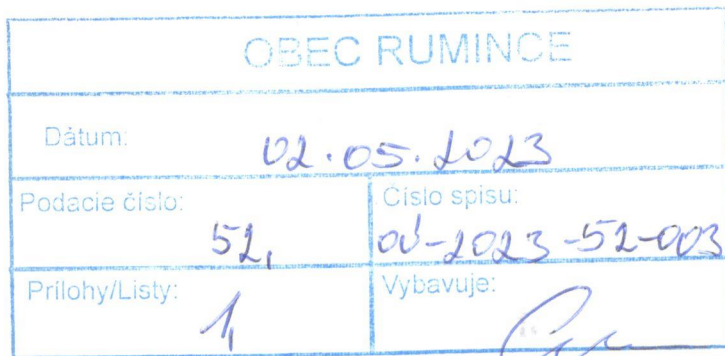 OBEC RUMINCE
Dátum: 02.05.2023
Podacie číslo: 52,
Číslo spisu: OÚ-2023-52-003
Prílohy/Listy: 1,
Vybavuje: